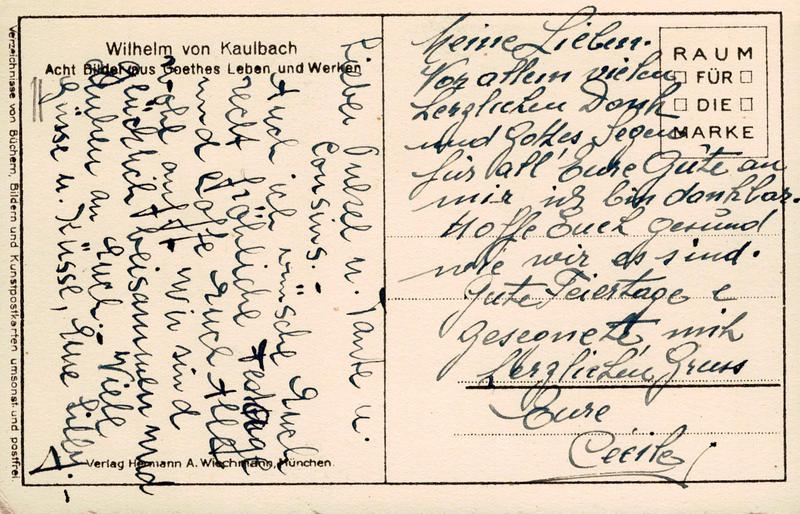 Wilhelm von Kaulbach
Acht Bilder aus Goethes Leben und Werken
Lieber Onkel u. Tante u.
Cousins.-
Auch ich wünsche Euch
recht fröhliche Festtage
und hoffe Euch alle
wohl auf. Wir sind
glücklich beisammen und
denken an Euch. Viele
Grüsse u. Küsse, Eure Lilly.
Verlag Hermann A. Wiechmann, München.
Verzeichnisse von Büchern, Bildern und Kunstpostkarten umsonst und postfrei.
RAUM
FÜR
DIE
MARKE
Meine Lieben.
Vor allem vielen
herzlichen Dank
und Gottes Segen
für all' Eure Güte an
mir ich bin dankbar.
Hoffe Euch gesund
wie wir es sind.
Gute Feiertage e
gesegnete, mit
herzlichen Gruss
Eure
Cécile